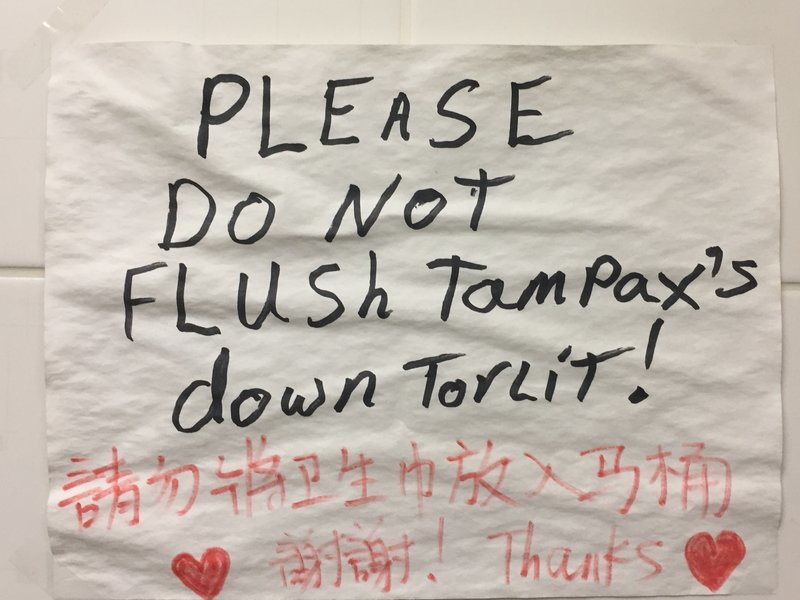 PLEASE
DO NOT
FLUSh TamPax's
down TorLiT!
請勿将卫生巾放入马桶
謝謝! Thanks